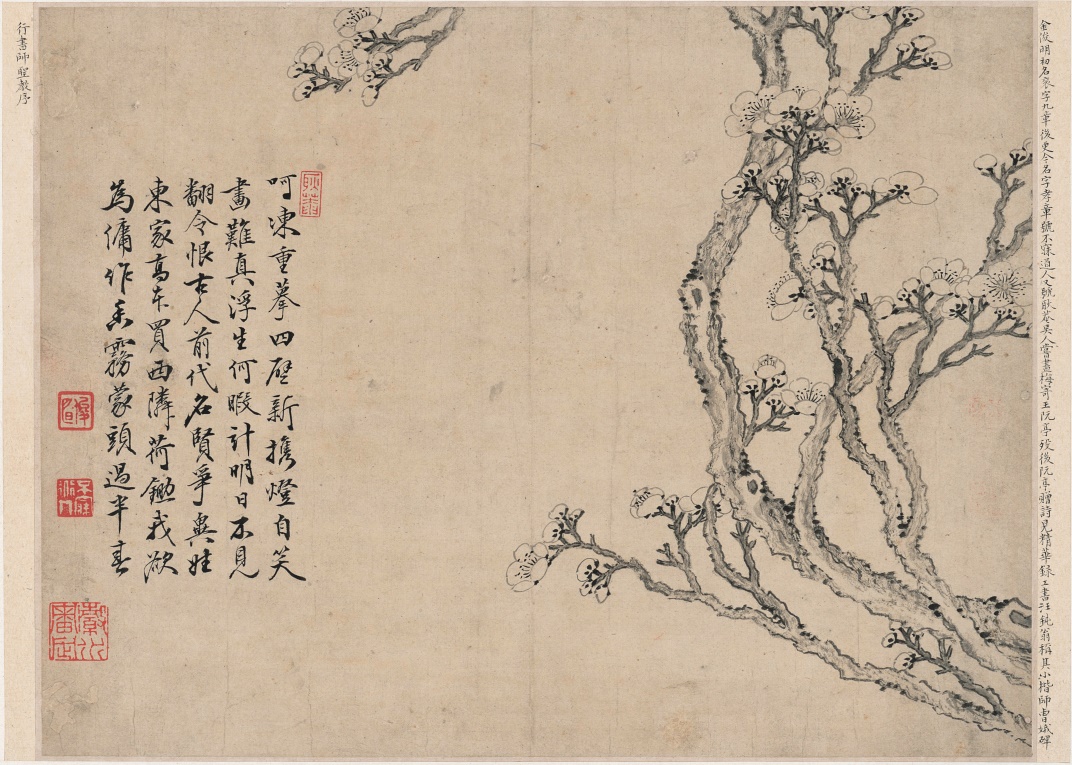 金俊明初名袞字九章後更今名字孝章號不寐道人又號耿菴吳人嘗畫梅寄王阮亭歿後阮亭贈詩見精華錄工書汪鈍翁稱其小楷師曹娥碑
行書師聖教序
耿菴
呵凍重摹四壁新攜燈自笑
畫難真浮生何暇計明日不見
翻令恨古人前代名賢爭與姓
東家高本買西隣荷鋤我欲
為傭作香霧蒙頭過半春
俊明
不寐道人